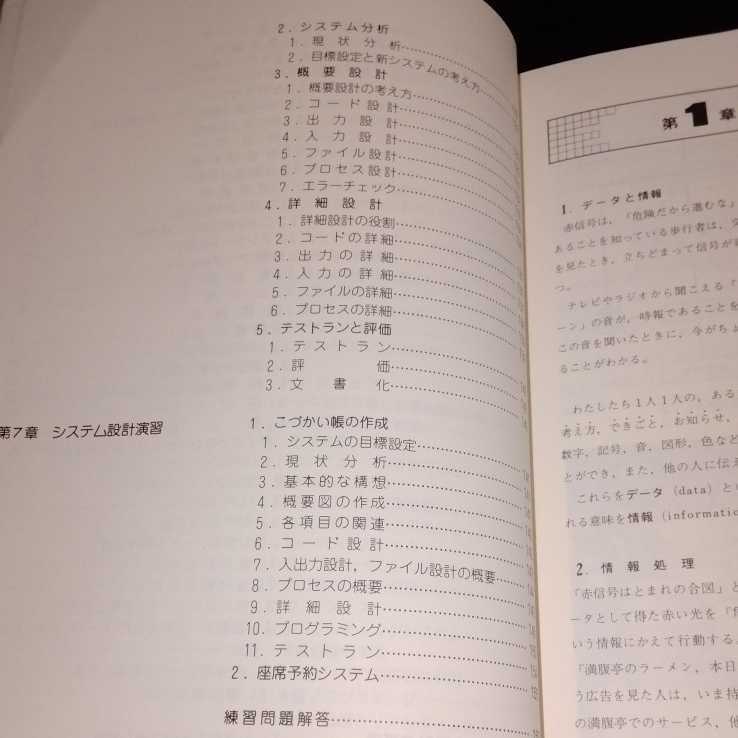 2. システム分析
1. 現状分析
2. 目標設定と新システムの考え方
3. 概要設計
1. 概要設計の考え方
2. コード設計
3. 出力設計
4. 入力設計
5. ファイル設計
6. プロセス設計
7. エラーチェック
4. 詳細設計
1. 詳細設計の役割
2. コードの詳細
3. 出力の詳細
4. 入力の詳細
5. ファイルの詳細
6. プロセスの詳細
5. テストランと評価
1. テストラン
2. 評価
3. 文書化
第7章 システム設計演習
1. こづかい帳の作成
1. システムの目標設定
2. 現状分析
3. 基本的な構想
4. 概要図の作成
5. 各項目の関連
6. コード設計
7. 入出力設計, ファイル設計の概要
8. プロセスの概要
9. 詳細設計
10. プログラミング
11. テストラン
2. 座席予約システム
練習問題解答
第1章
1. データと情報
赤信号は、「危険だから進むな」
あることを知っている歩行者は、
を見たとき、立ちどまって信号が
つ。
テレビやラジオから聞こえる「
ーン」の音が、時報であることを
この音を聞いたときに、今がちょ
ることがわかる。
わたしたち1人1人の、ある
考え方、できごと、お知らせ、
数字、記号、音、図形、色など
とができ、また、他の人に伝え
これらをデータ (data) と
れる意味を情報 (informatio
2. 情報処理
「赤信号はとまれの合図」と
ータとして得た赤い光を「危
いう情報にかえて行動する。
「満腹亭のラーメン、本日
う広告を見た人は、いま持
の満腹亭でのサービス、他